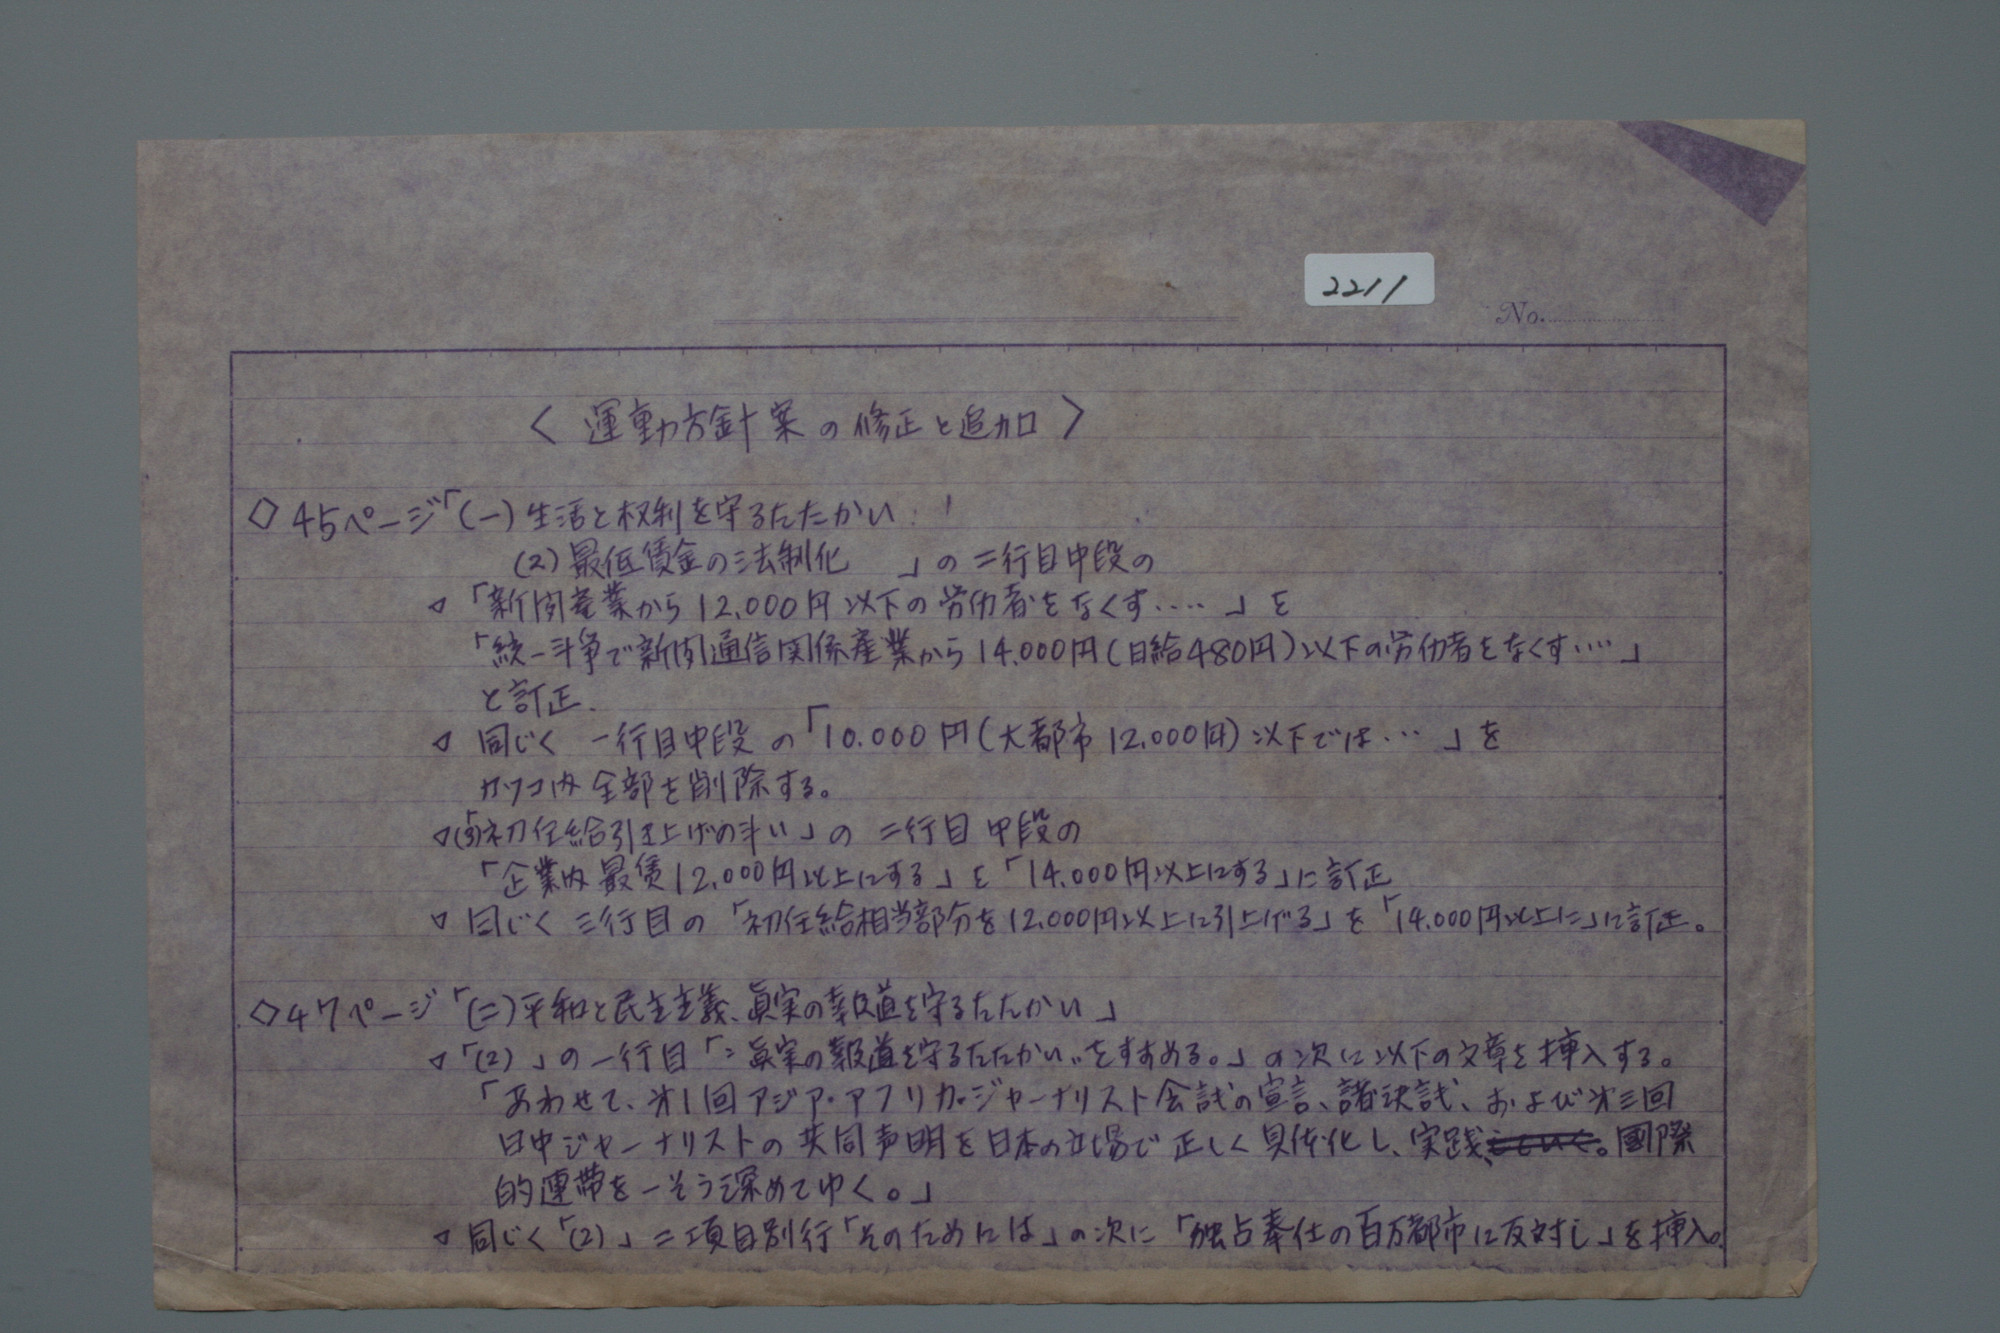 2211
No.
〈 運動方針案の修正と追加 〉
◇ 45ページ「(一) 生活と权利を守るたたかい
(2) 最低賃金の法制化 」の二行目中段の
▽ 「新聞産業から12,000円以下の労仂者をなくす‥‥」を
「統一斗争で新聞通信関係産業から14.000円(日給480円)以下の労仂者をなくす‥‥」
と訂正.
▽ 同じく 一行目中段 の「10.000円(大都市12,000円)以下では…」を
カツコ内 全部を削除する。
▽(5)初任給引き上げの斗い」の 二行目 中段の
「企業内 最賃12.000円以上にする」を「14.000円以上にする」に訂正
▽ 同じく 三行目の 「初任給相当部分を12.000円以上に引上げる」を「14.000円以上に」に訂正。
◇47ページ「(二)平和と民主主義、眞実の報道を守るたたかい」
▽「(2) 」の一行目「〝眞実の報道を守るたたかい〟をすすめる。」の次に以下の文章を挿入する。
「あわせて、㐧1回アジア・アフリカ・ジャーナリスト会議の宣言、諸決議、および㐧三回
日中ジャーナリストの共同声明を日本の立場で正しく具体化し、実践、していく。國際
的連帯を一そう深めてゆく。」
▽ 同じく「(2)」二項目別行「そのためには」の次に「独占奉仕の百万都市に反対し」を挿入。